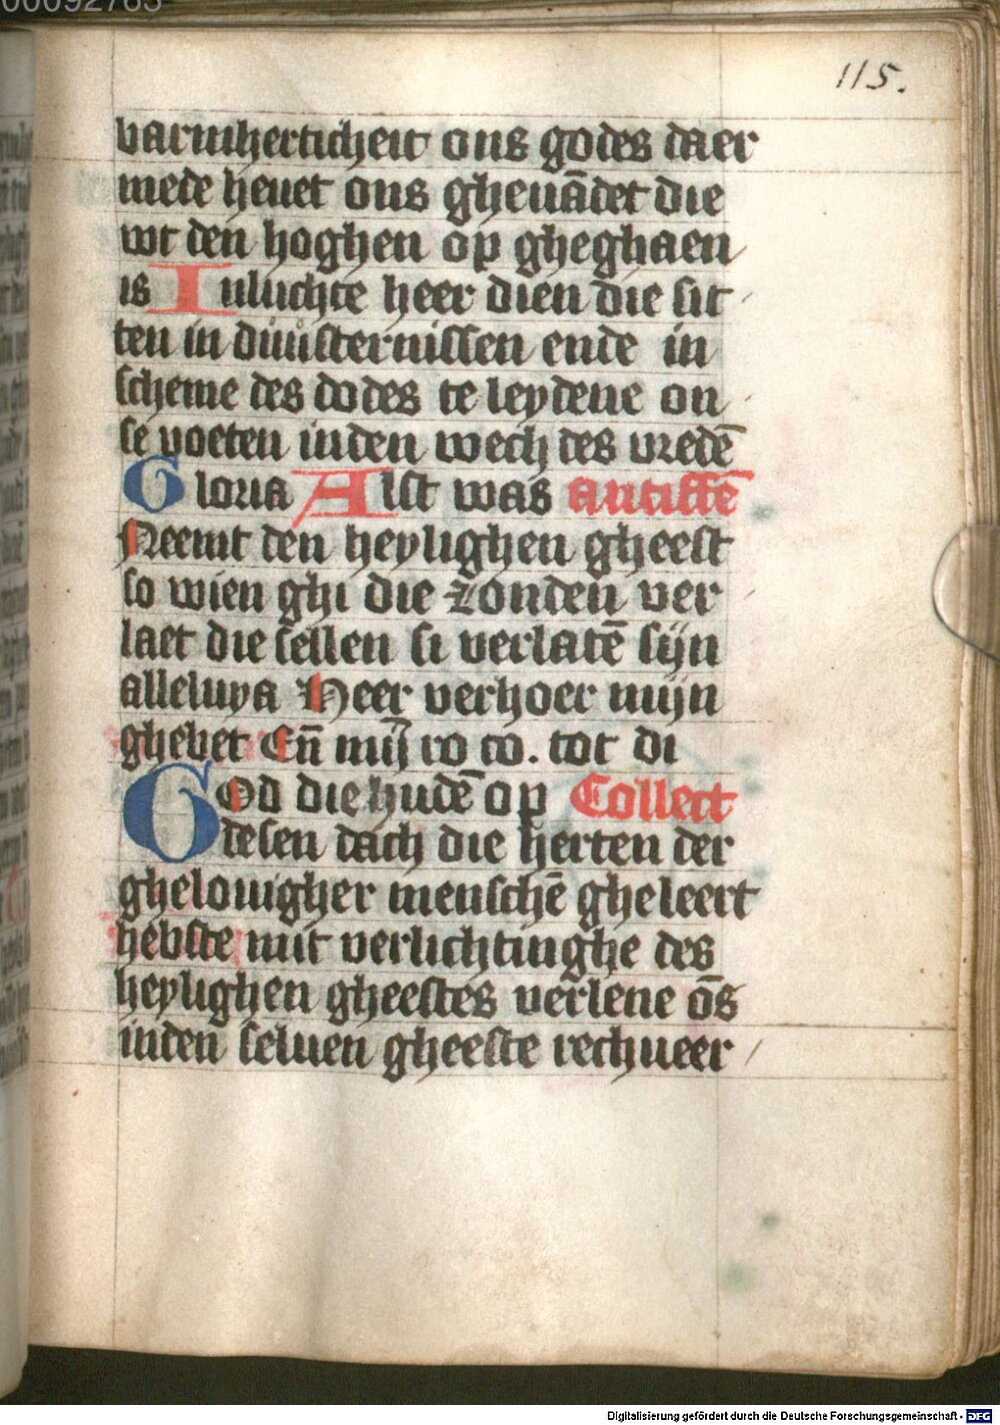 00092763
115.
barmherticheit ons godes daer
mede heuet ons gheuādet die
wt den hoghen op gheghaen
is Inluchte heer dien die sit
ten in duusternissen ende in
scheme des dodes te leydene on
se voeten inden wech des vredē
Gloria Alst was antiffē
Neemt den heylighen gheest
so wien ghi die zonden ver
laet die sellen si verlatē sijn
alleluya Heer verhoer mijn
ghebet En̄ mij ro co. tot di
God die hudē op Collect
desen dach die herten der
ghelouigher menschē gheleert
hebste mit verlichtinghe des
heylighen gheestes verlene ōs
inden seluen gheeste rechueer
Digitalisierung gefördert durch die Deutsche Forschungsgemeinschaft - DFG